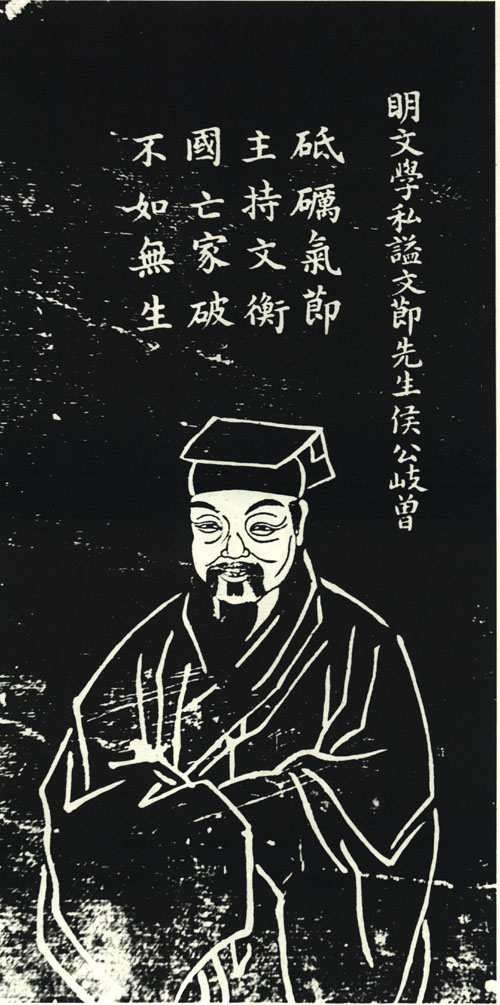 明文學私謚文節先生侯公岐曾
砥礪氣節
主持文衡
國亡家破
不如無生